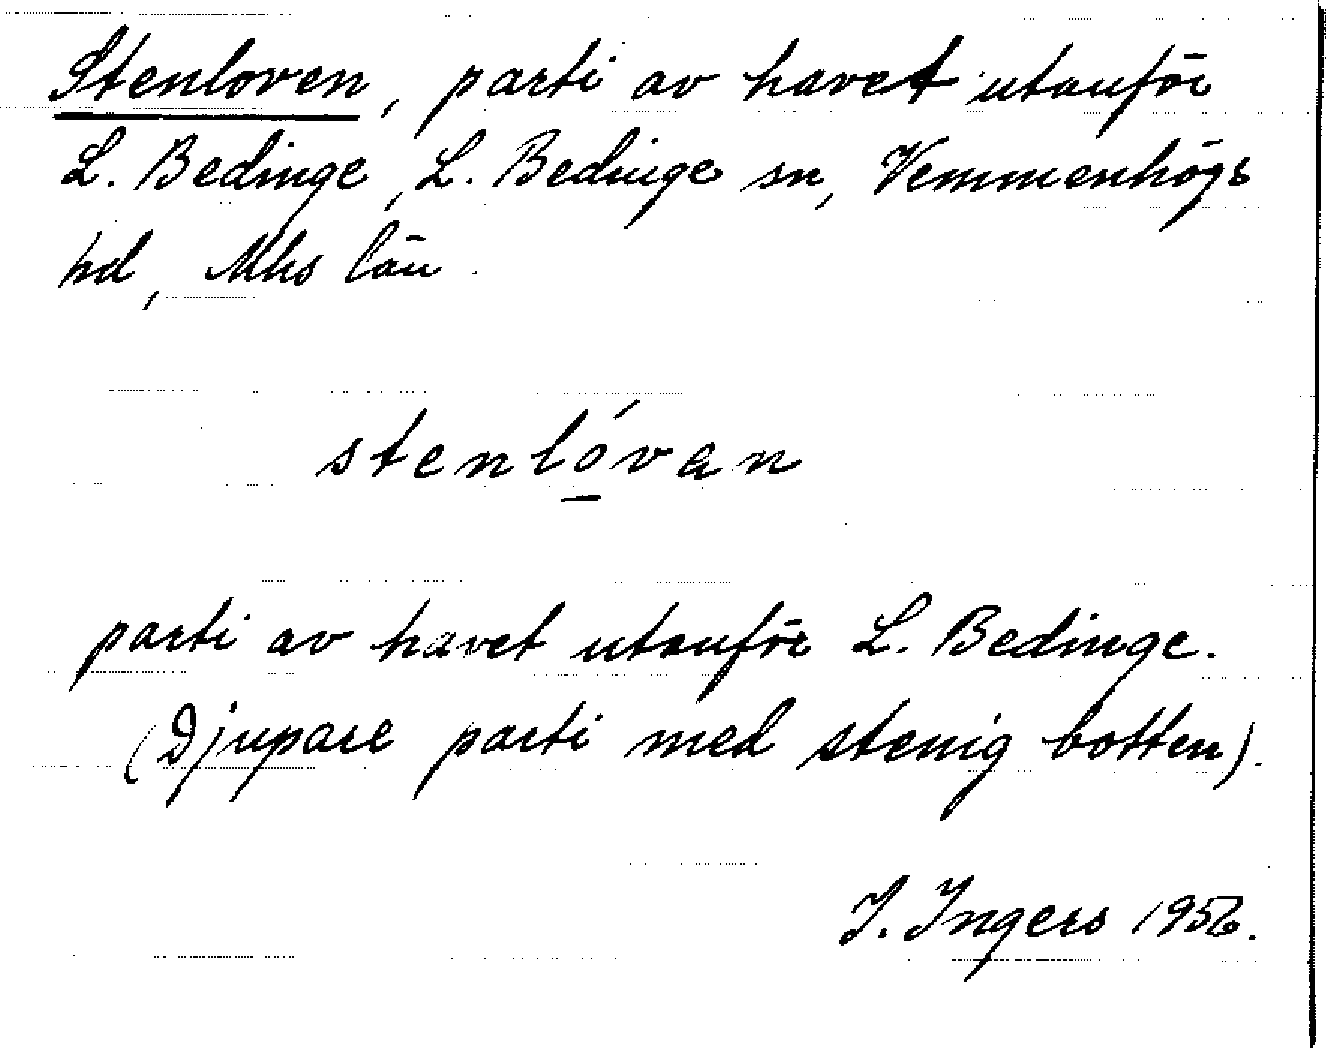 Stenloven, parti av havet utanför
L. Bedinge, L. Bedinge sn, Vemmenhögs
hd, Mhs län.
stenlóvan
parti av havet utanför L. Bedinge.
(Djupare parti med stenig botten).
I. Ingers 1956.